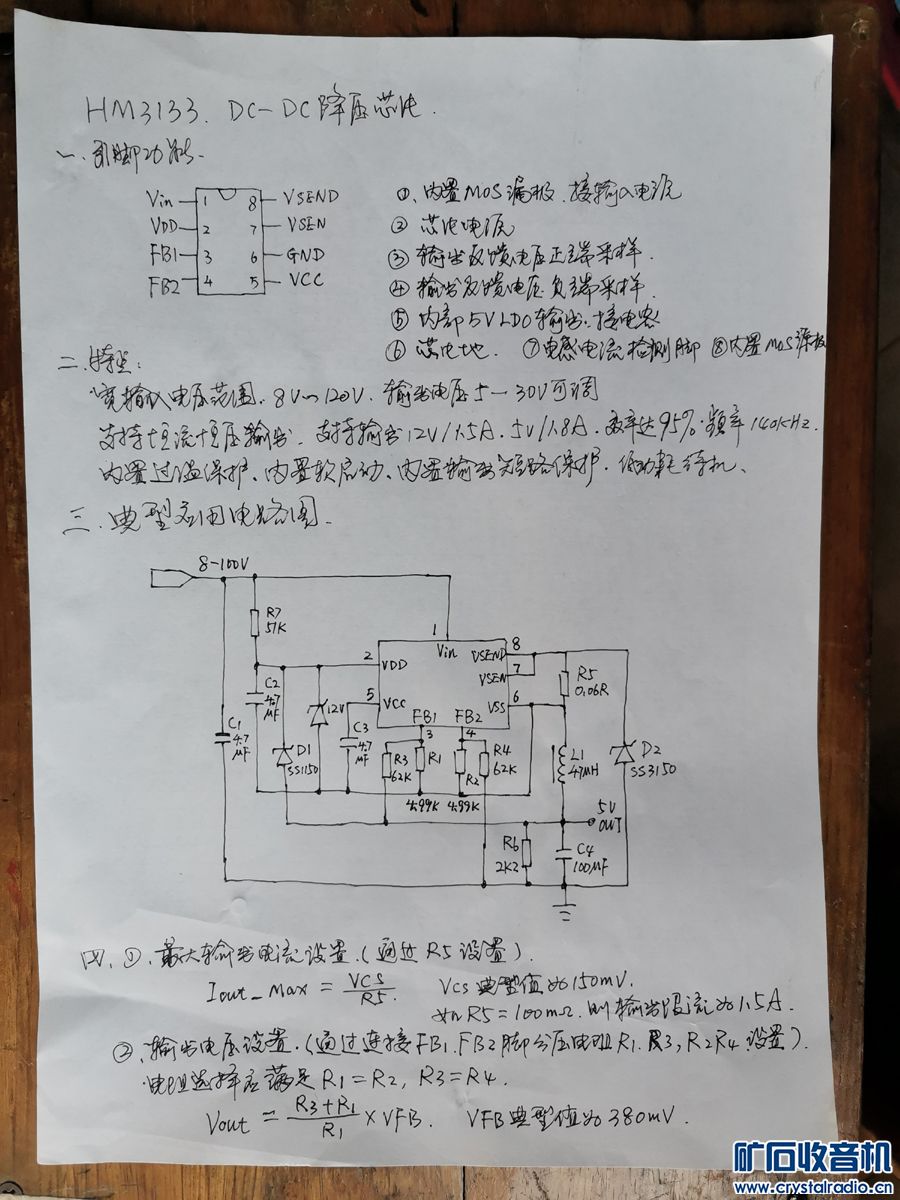 HM3133. DC-DC降压芯片.
一.引脚功能.
Vin 1 8 VSEND
VDD 2 7 VSEN
FB1 3 6 GND
FB2 4 5 VCC
①.内置MOS漏极.接输入电源
② 芯片电源
③ 输出反馈电压正端采样.
④ 输出反馈电压负端采样.
⑤ 内部5VLDO输出.接电容
⑥ 芯片地. ⑦电感电流检测脚 ⑧内置MOS源极
二.特点:
宽输入电压范围.8V~120V.输出电压5-30V可调
支持恒流恒压输出.支持输出12V/1.5A.5V/1.8A.效率达95%.频率140KHz.
内置过温保护、内置软启动、内置输出短路保护.低功耗待机、
三.典型应用电路图.
8-100V
R7
51K
1
Vin
2
VDD
5
VCC
FB1
3
FB2
4
8
VSEND
7
VSEN
6
VSS
R5
0.06R
C2
4.7
MF
C1
4.7
MF
12V
D1
SS1150
C3
4.7
MF
R3
62K
R1
4.99K
R2
4.99K
R4
62K
L1
47MH
D2
SS3150
5V
OUT
R6
2K2
C4
100MF
四.①.最大输出电流设置.(通过R5设置).
Iout_max = VCS/R5. Vcs典型值为150mV.
如R5=100mΩ.则输出限流为1.5A.
②.输出电压设置.(通过连接FB1.FB2脚分压电阻R1.R3,R2R4设置).
电阻选择应满足R1=R2,R3=R4.
Vout = R3+R1/R1 × VFB. VFB典型值为380mV.
矿石收音机
www.crystalradio.cn